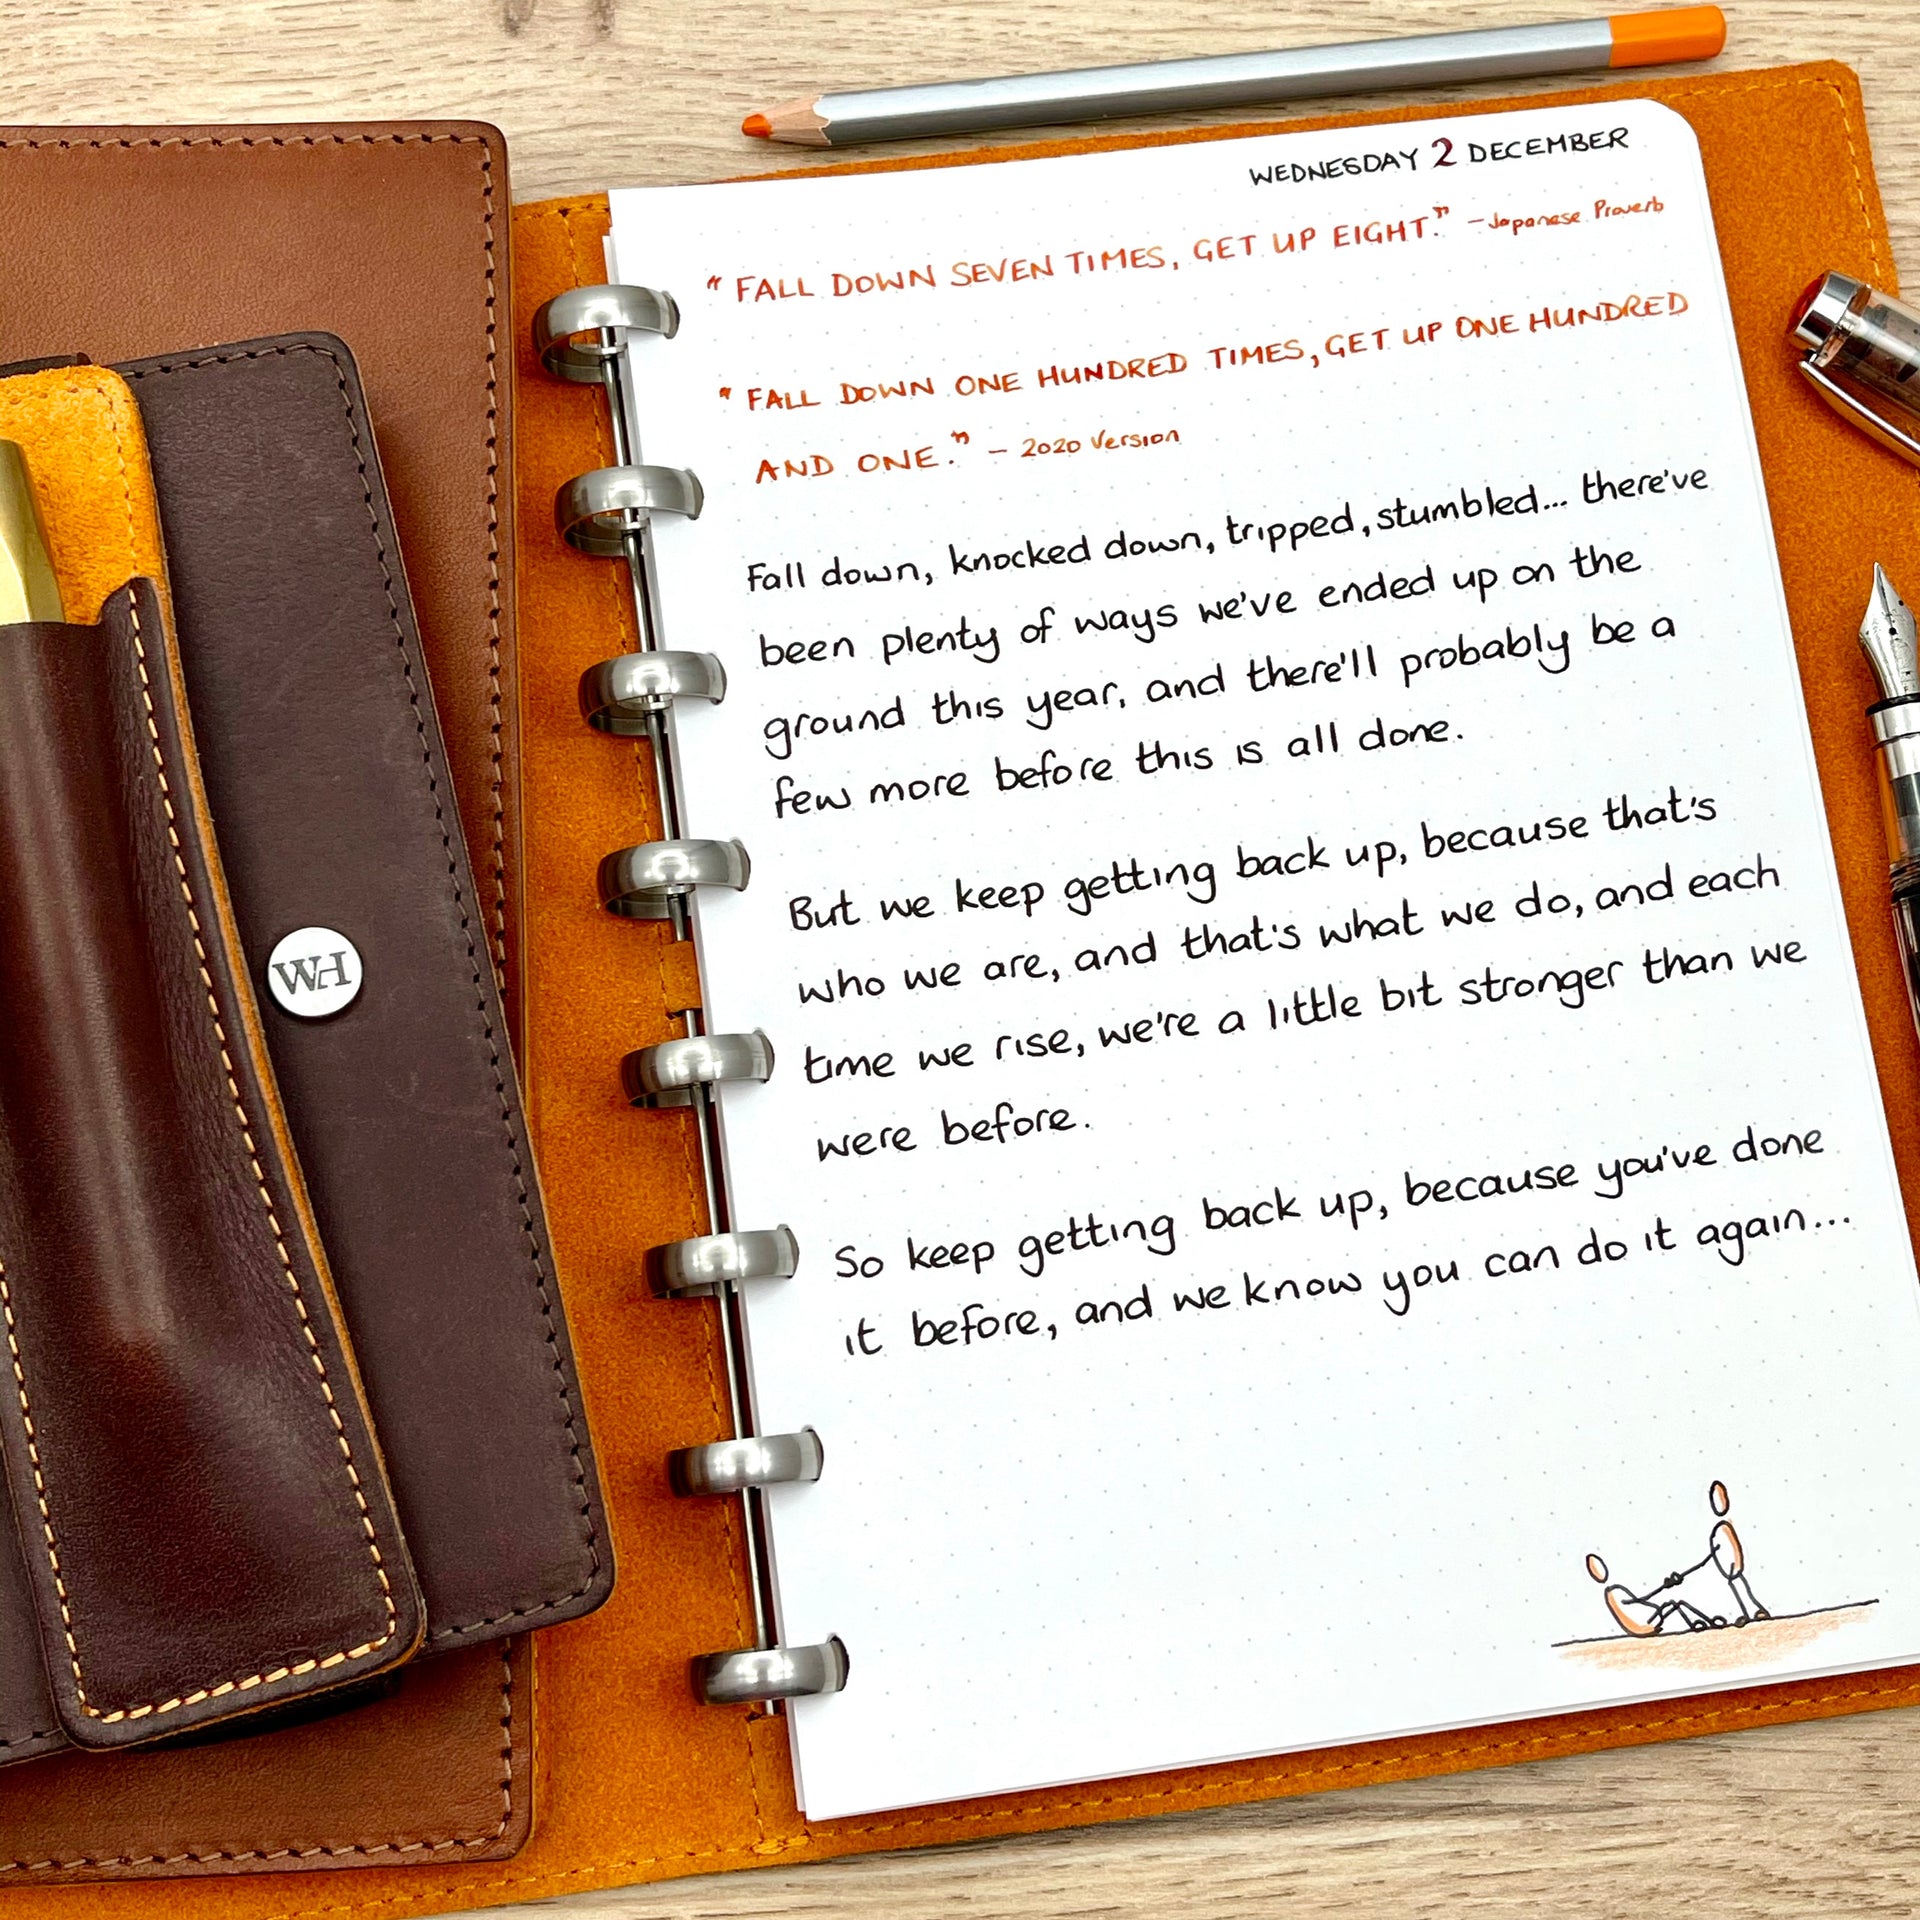 WEDNESDAY 2 DECEMBER
“FALL DOWN SEVEN TIMES, GET UP EIGHT.” - Japanese Proverb
“FALL DOWN ONE HUNDRED TIMES, GET UP ONE HUNDRED
AND ONE.” - 2020 Version
Fall down, knocked down, tripped, stumbled... there've
been plenty of ways we've ended up on the
ground this year, and there'll probably be a
few more before this is all done.
But we keep getting back up, because that's
who we are, and that's what we do, and each
time we rise, we're a little bit stronger than we
were before.
So keep getting back up, because you've done
it before, and we know you can do it again...
WH